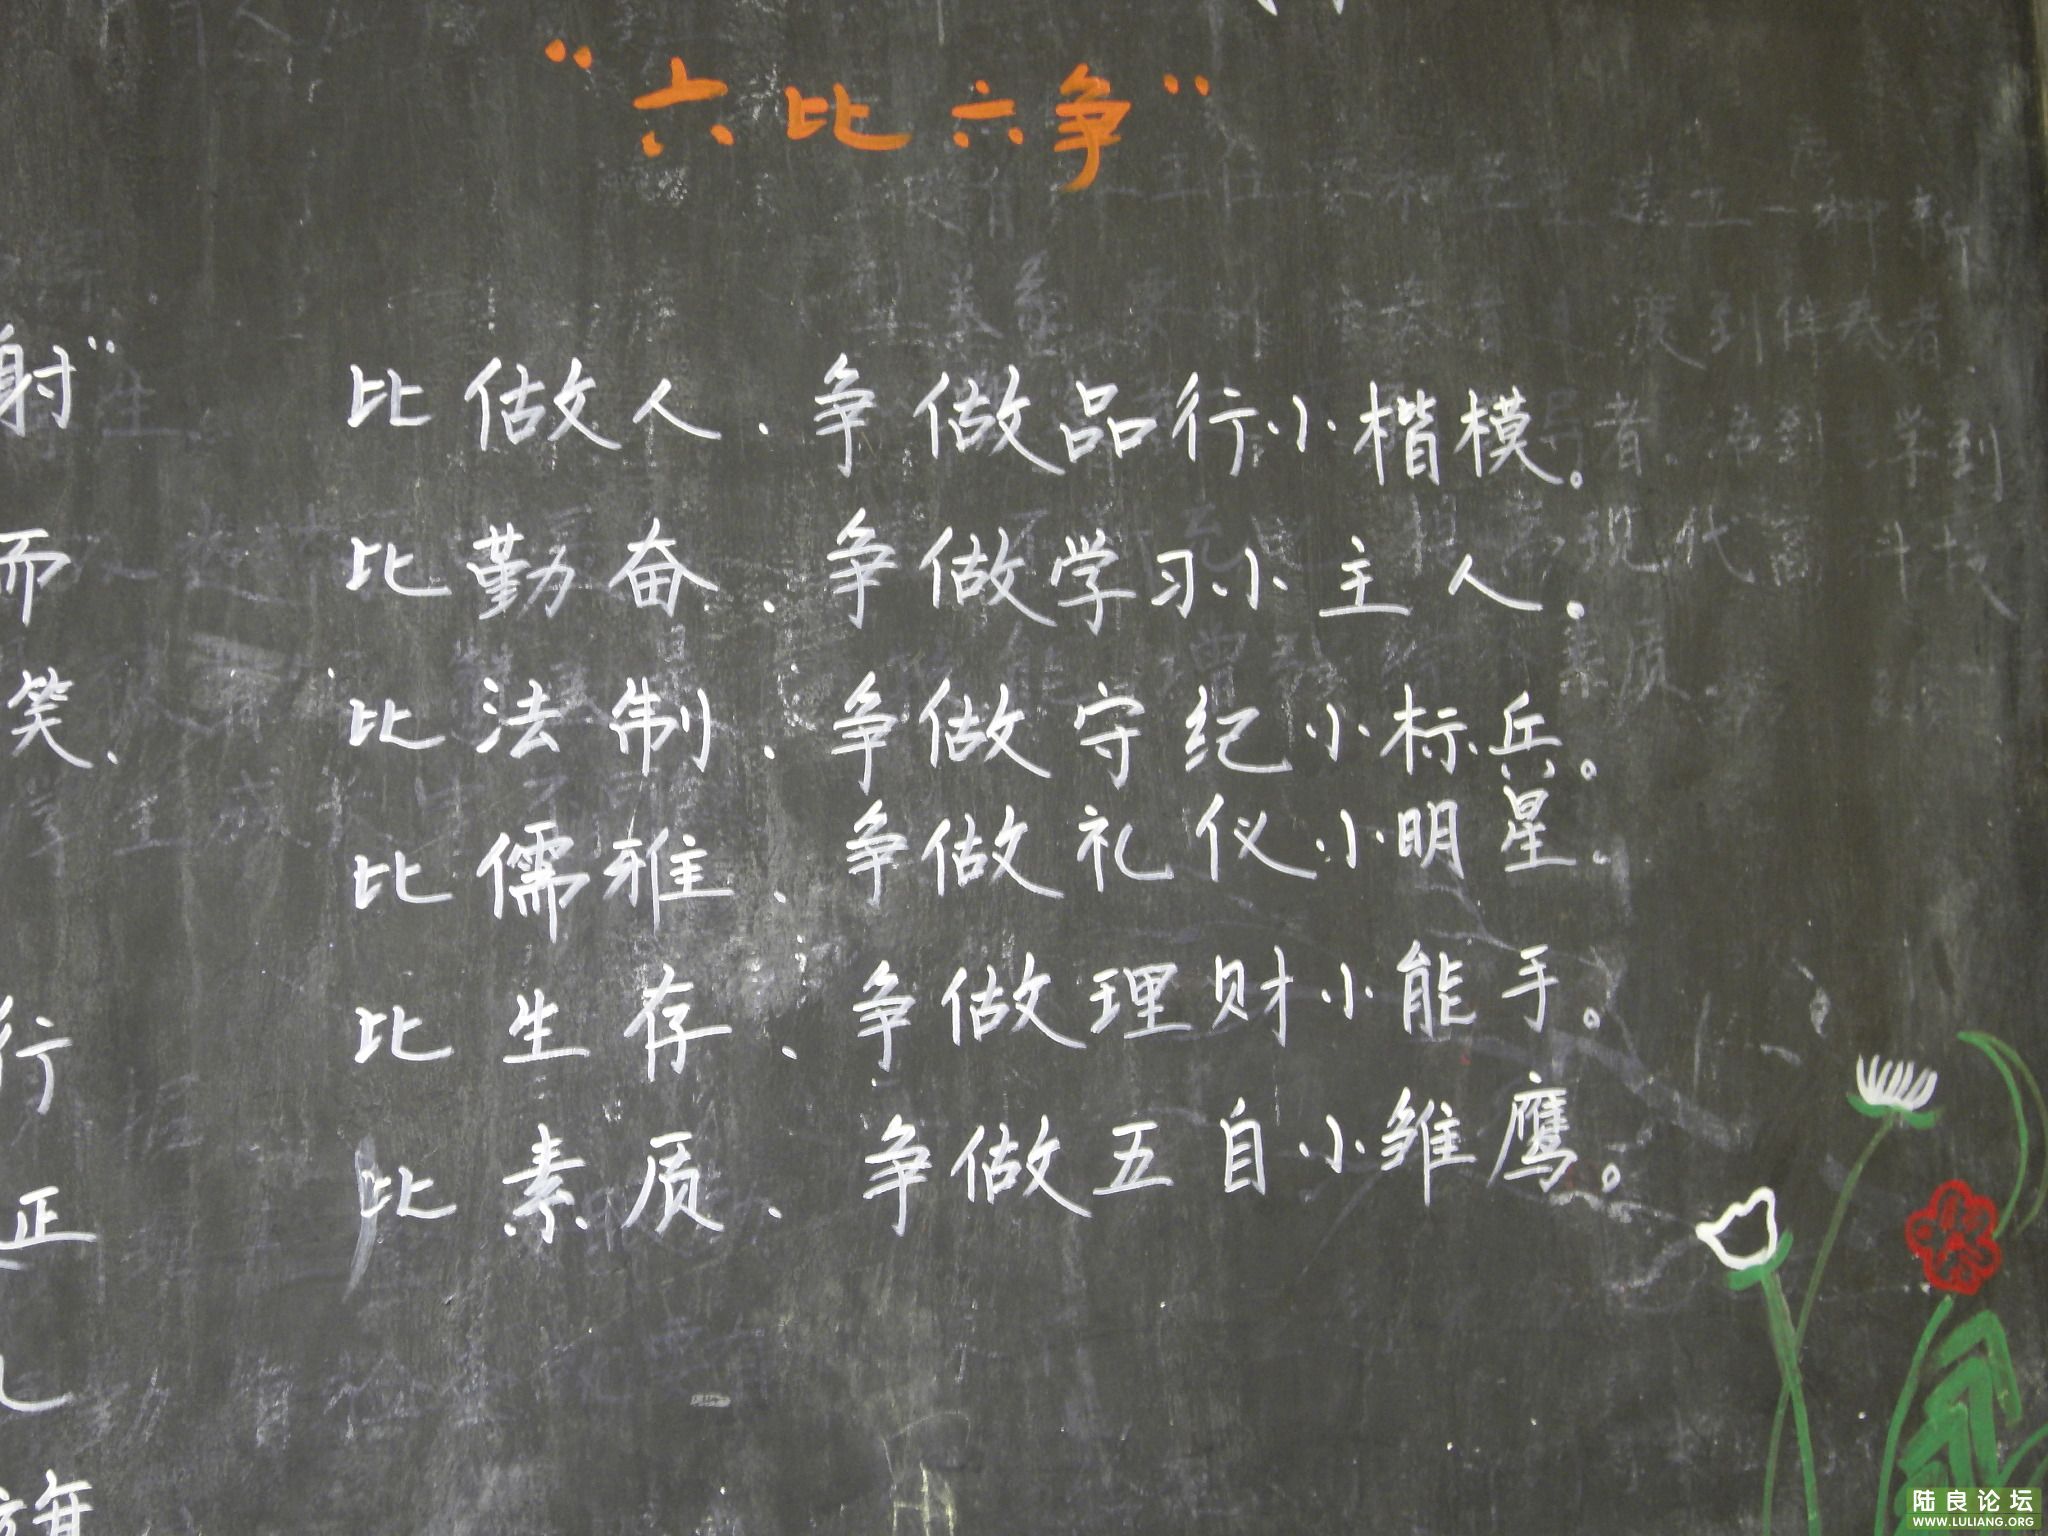 "六比六争"
射"
比做人、争做品行小楷模。
而
比勤奋、争做学习小主人。
笑、
比法制、争做守纪小标兵。
比儒雅、争做礼仪小明星。
行
比生存、争做理财小能手。
正
比素质、争做五自小雏鹰。
陆良论坛
WWW.LULIANG.ORG